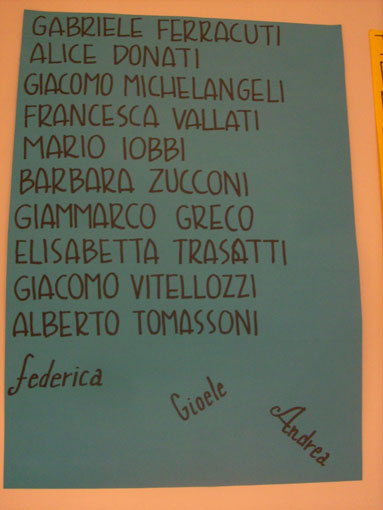 GABRIELE FERRACUTI
ALICE DONATI
GIACOMO MICHELANGELI
FRANCESCA VALLATI
MARIO IOBBI
BARBARA ZUCCONI
GIAMMARCO GRECO
ELISABETTA TRASATTI
GIACOMO VITELLOZZI
ALBERTO TOMASSONI
federica
Gioele
Andrea